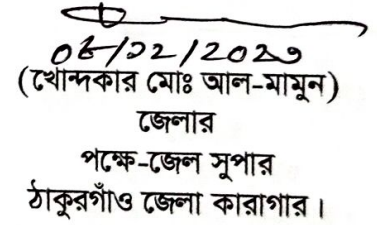 (খোন্দকার মোঃ আল-মামুন)
জেলার
পক্ষে-জেল সুপার
ঠাকুরগাঁও জেলা কারাগার।